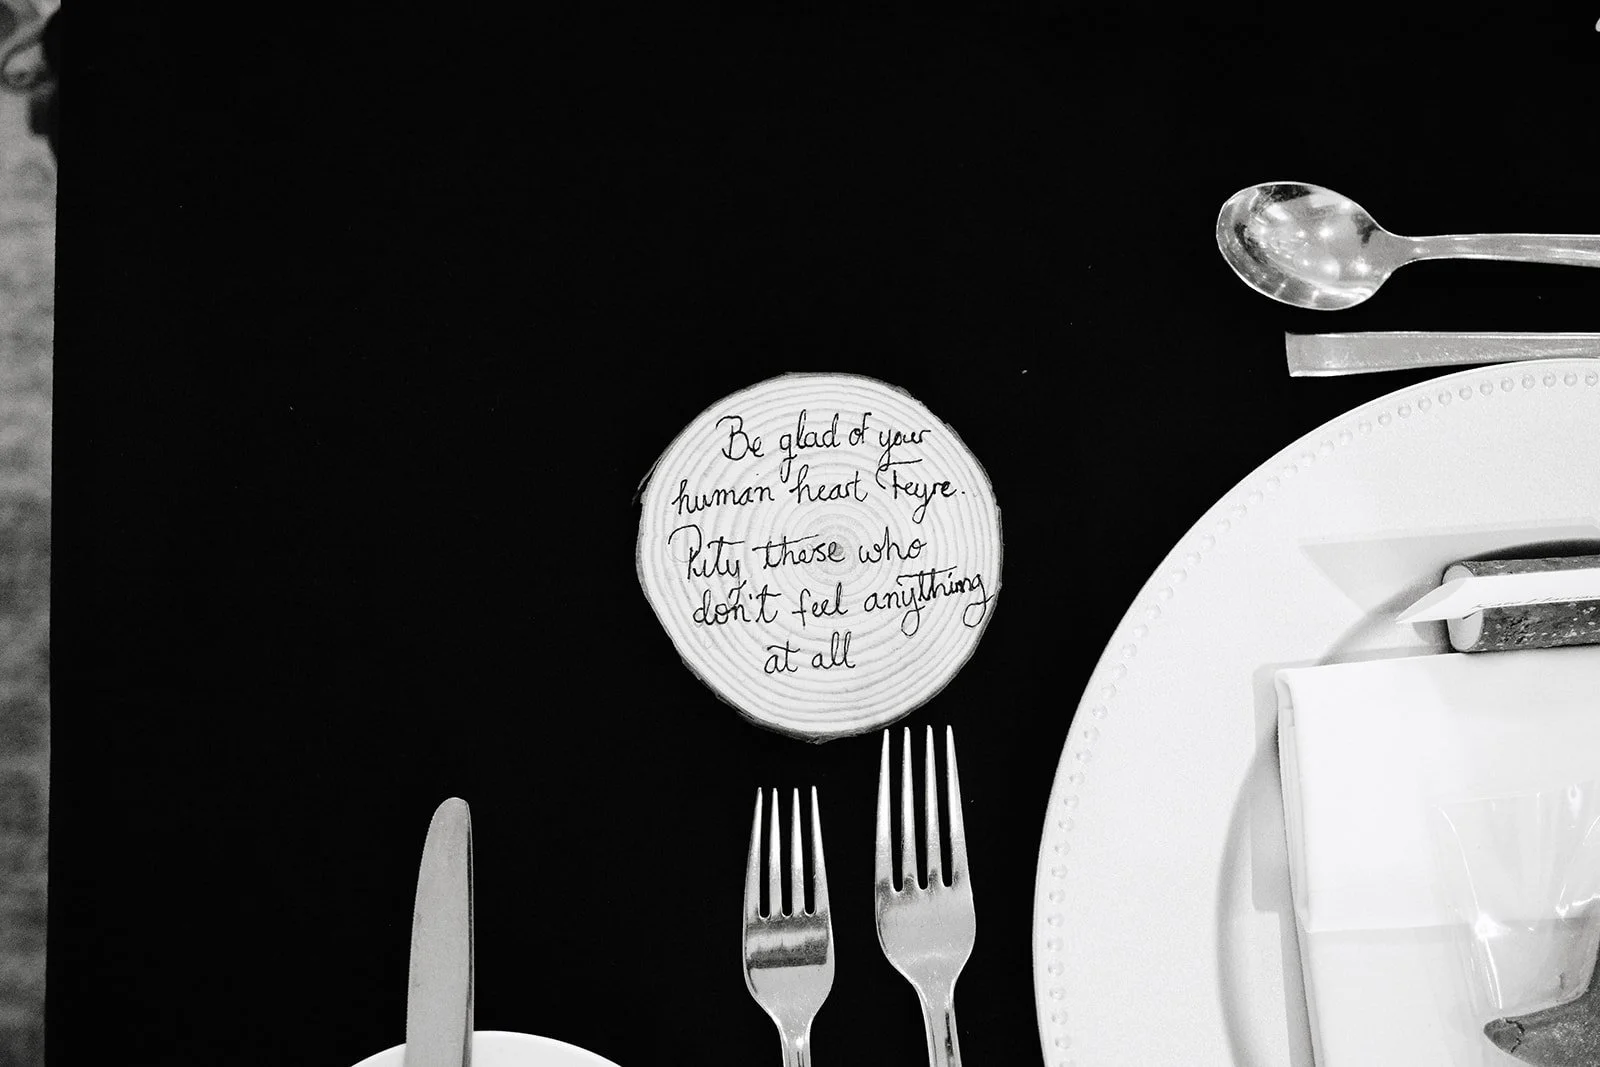 Be glad of your
human heart Feyre.
Pity those who
don't feel anything
at all